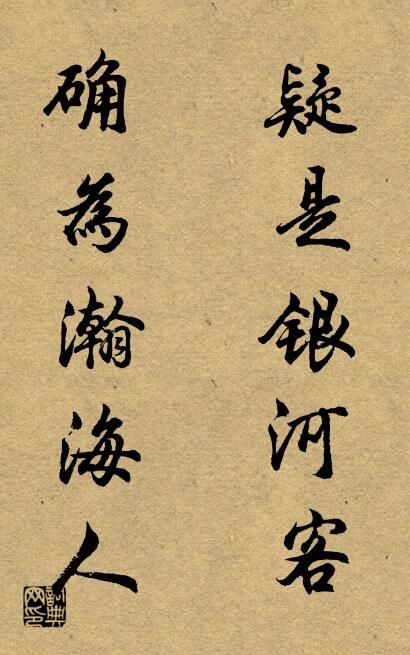 疑是银河客
确為瀚海人